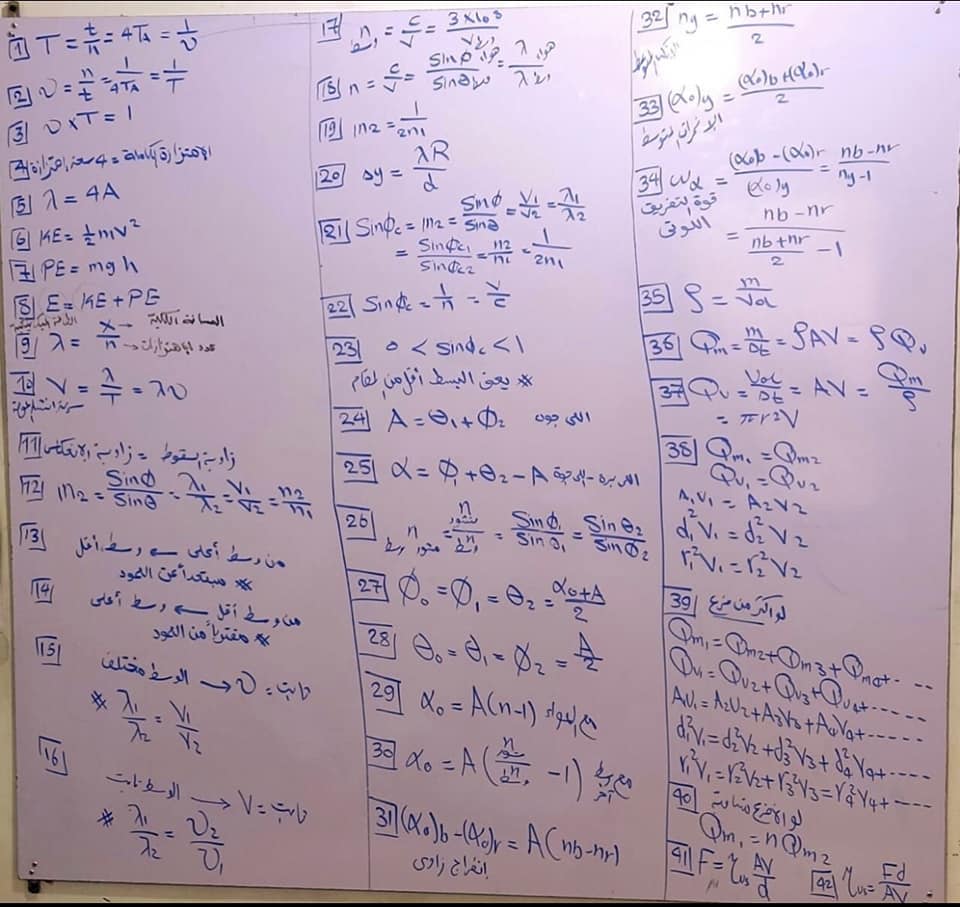 1 T = t/n = 4TA = 1/υ
2 υ = n/t = 1/4TA = 1/T
3 υ x T = 1
4 الاهتزازة الكاملة = 4 سعة اهتزازة
5 λ = 4A
6 KE = 1/2 mv²
7 PE = mgh
8 E = KE + PE
9 λ = x/n
المسافة الكلية
عدد الاهتزازات
10 V = λ/T = λυ
11 زاوية السقوط = زاوية الانعكاس
12 1n2 = Sinϕ/Sinθ = λ1/λ2 = V1/V2 = n2/n1
13 من وسط أعلى ← وسط أقل
* مبتعداً عن العمود
14 من وسط أقل ← وسط أعلى
* مقترباً من العمود
15 الوسط مختلف → υ = ثابت
* λ1/λ2 = V1/V2
16 الوسط ثابت → V = ثابت
* λ1/λ2 = υ2/υ1
17 n وسط = c/V = 3x10⁸/V وسط
18 n = c/V = Sinϕ هواء/Sinθ وسط = λ هواء/λ وسط
19 1n2 = 1/2n1
20 Δy = λR/d
21 Sinϕc = 1n2 = Sinϕ/Sinθ = V1/V2 = λ1/λ2
= Sinϕc1/Sinϕc2 = n2/n1 = 1/2n1
22 Sinϕc = 1/n = V/c
23 0 < Sinϕc < 1
* يعنى البسط أقل من المقام
24 A = θ1 + ϕ2 اللى جوه
25 α = ϕ1 + θ2 - A اللى بره - اللى جوة
26 n منشور وسط = n منشور/n وسط = Sinϕ1/Sinθ1 = Sinθ2/Sinϕ2
27 ϕ0 = ϕ1 = θ2 = α0+A/2
28 θ0 = θ1 = ϕ2 = A/2
29 α0 = A(n-1) مع الهواء
30 α0 = A(n منشور/n وسط - 1) مع وسط آخر
31 (α0)b - (α0)r = A(nb - nr)
انفراج زاوى
32 ny = nb+nr/2
33 (α0)y = (α0)b + (α0)r/2
الانحراف المتوسط
34 ωα = (α0)b - (α0)r/(α0)y = nb-nr/ny-1
قوة التفريق
اللونى
= nb-nr/(nb+nr/2 - 1)
35 ρ = m/Vol
36 Qm = m/Δt = ρAV = ρQv
37 Qv = Vol/Δt = AV = Qm/ρ
= πr²V
38 Qm1 = Qm2
Qv1 = Qv2
A1V1 = A2V2
d1²V1 = d2²V2
r1²V1 = r2²V2
39 لو أكتر من فرع
Qm1 = Qm2 + Qm3 + Qm4 + - - -
Qv1 = Qv2 + Qv3 + Qv4 + - - - - -
A1V1 = A2V2 + A3V3 + A4V4 + - - - - -
d1²V1 = d2²V2 + d3²V3 + d4²V4 + - - - -
r1²V1 = r2²V2 + r3²V3 = r4²V4 + - - - -
40 لو الأفرع متشابهة
Qm1 = nQm2
41 F = ηvs AV/d
42 ηvs = Fd/AV